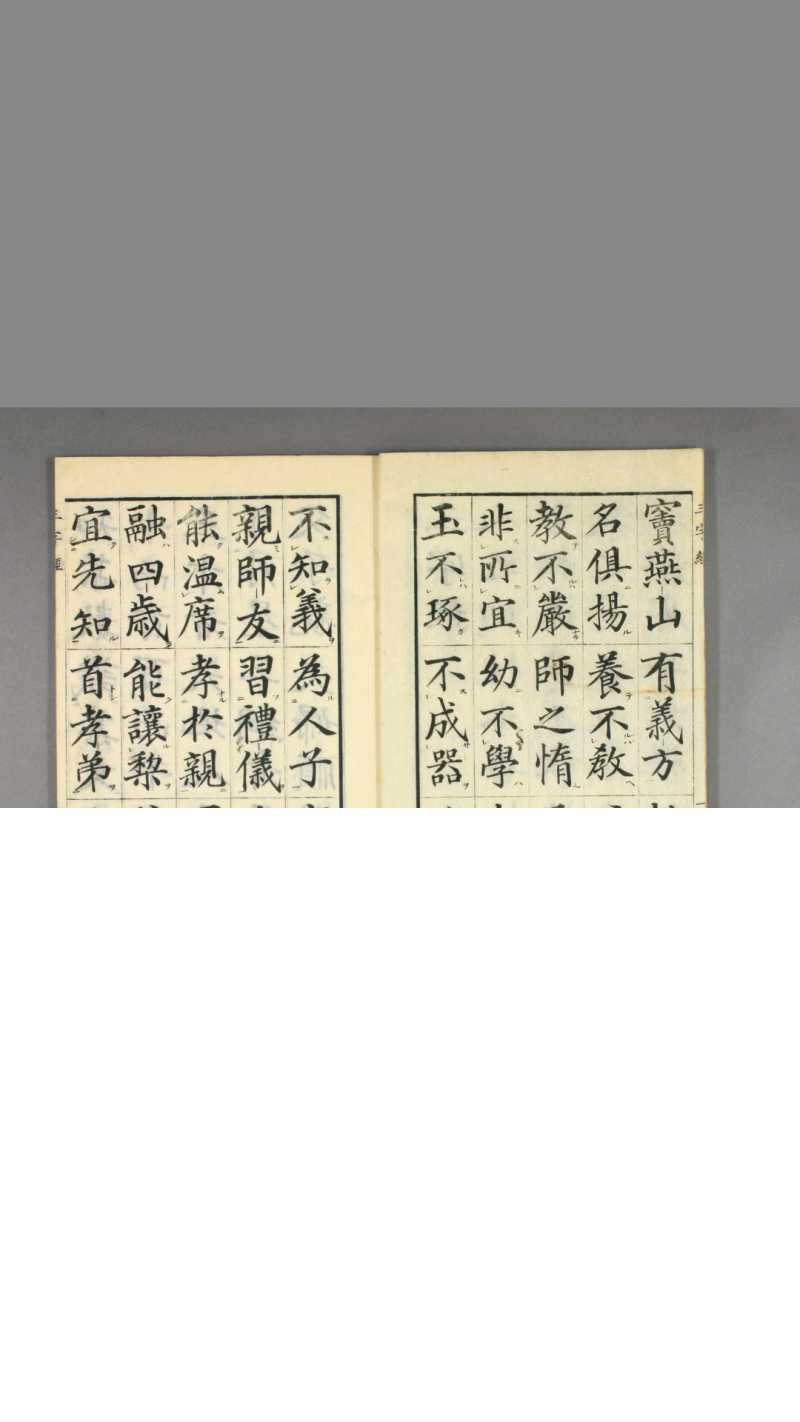 三字經
竇燕山有義方
名俱揚養不教
教不嚴師之惰
非所宜幼不學
玉不琢不成器
不知義為人子
親師友習禮儀
能温席孝於親
融四歳能讓棃
宜先知首孝弟
三字經